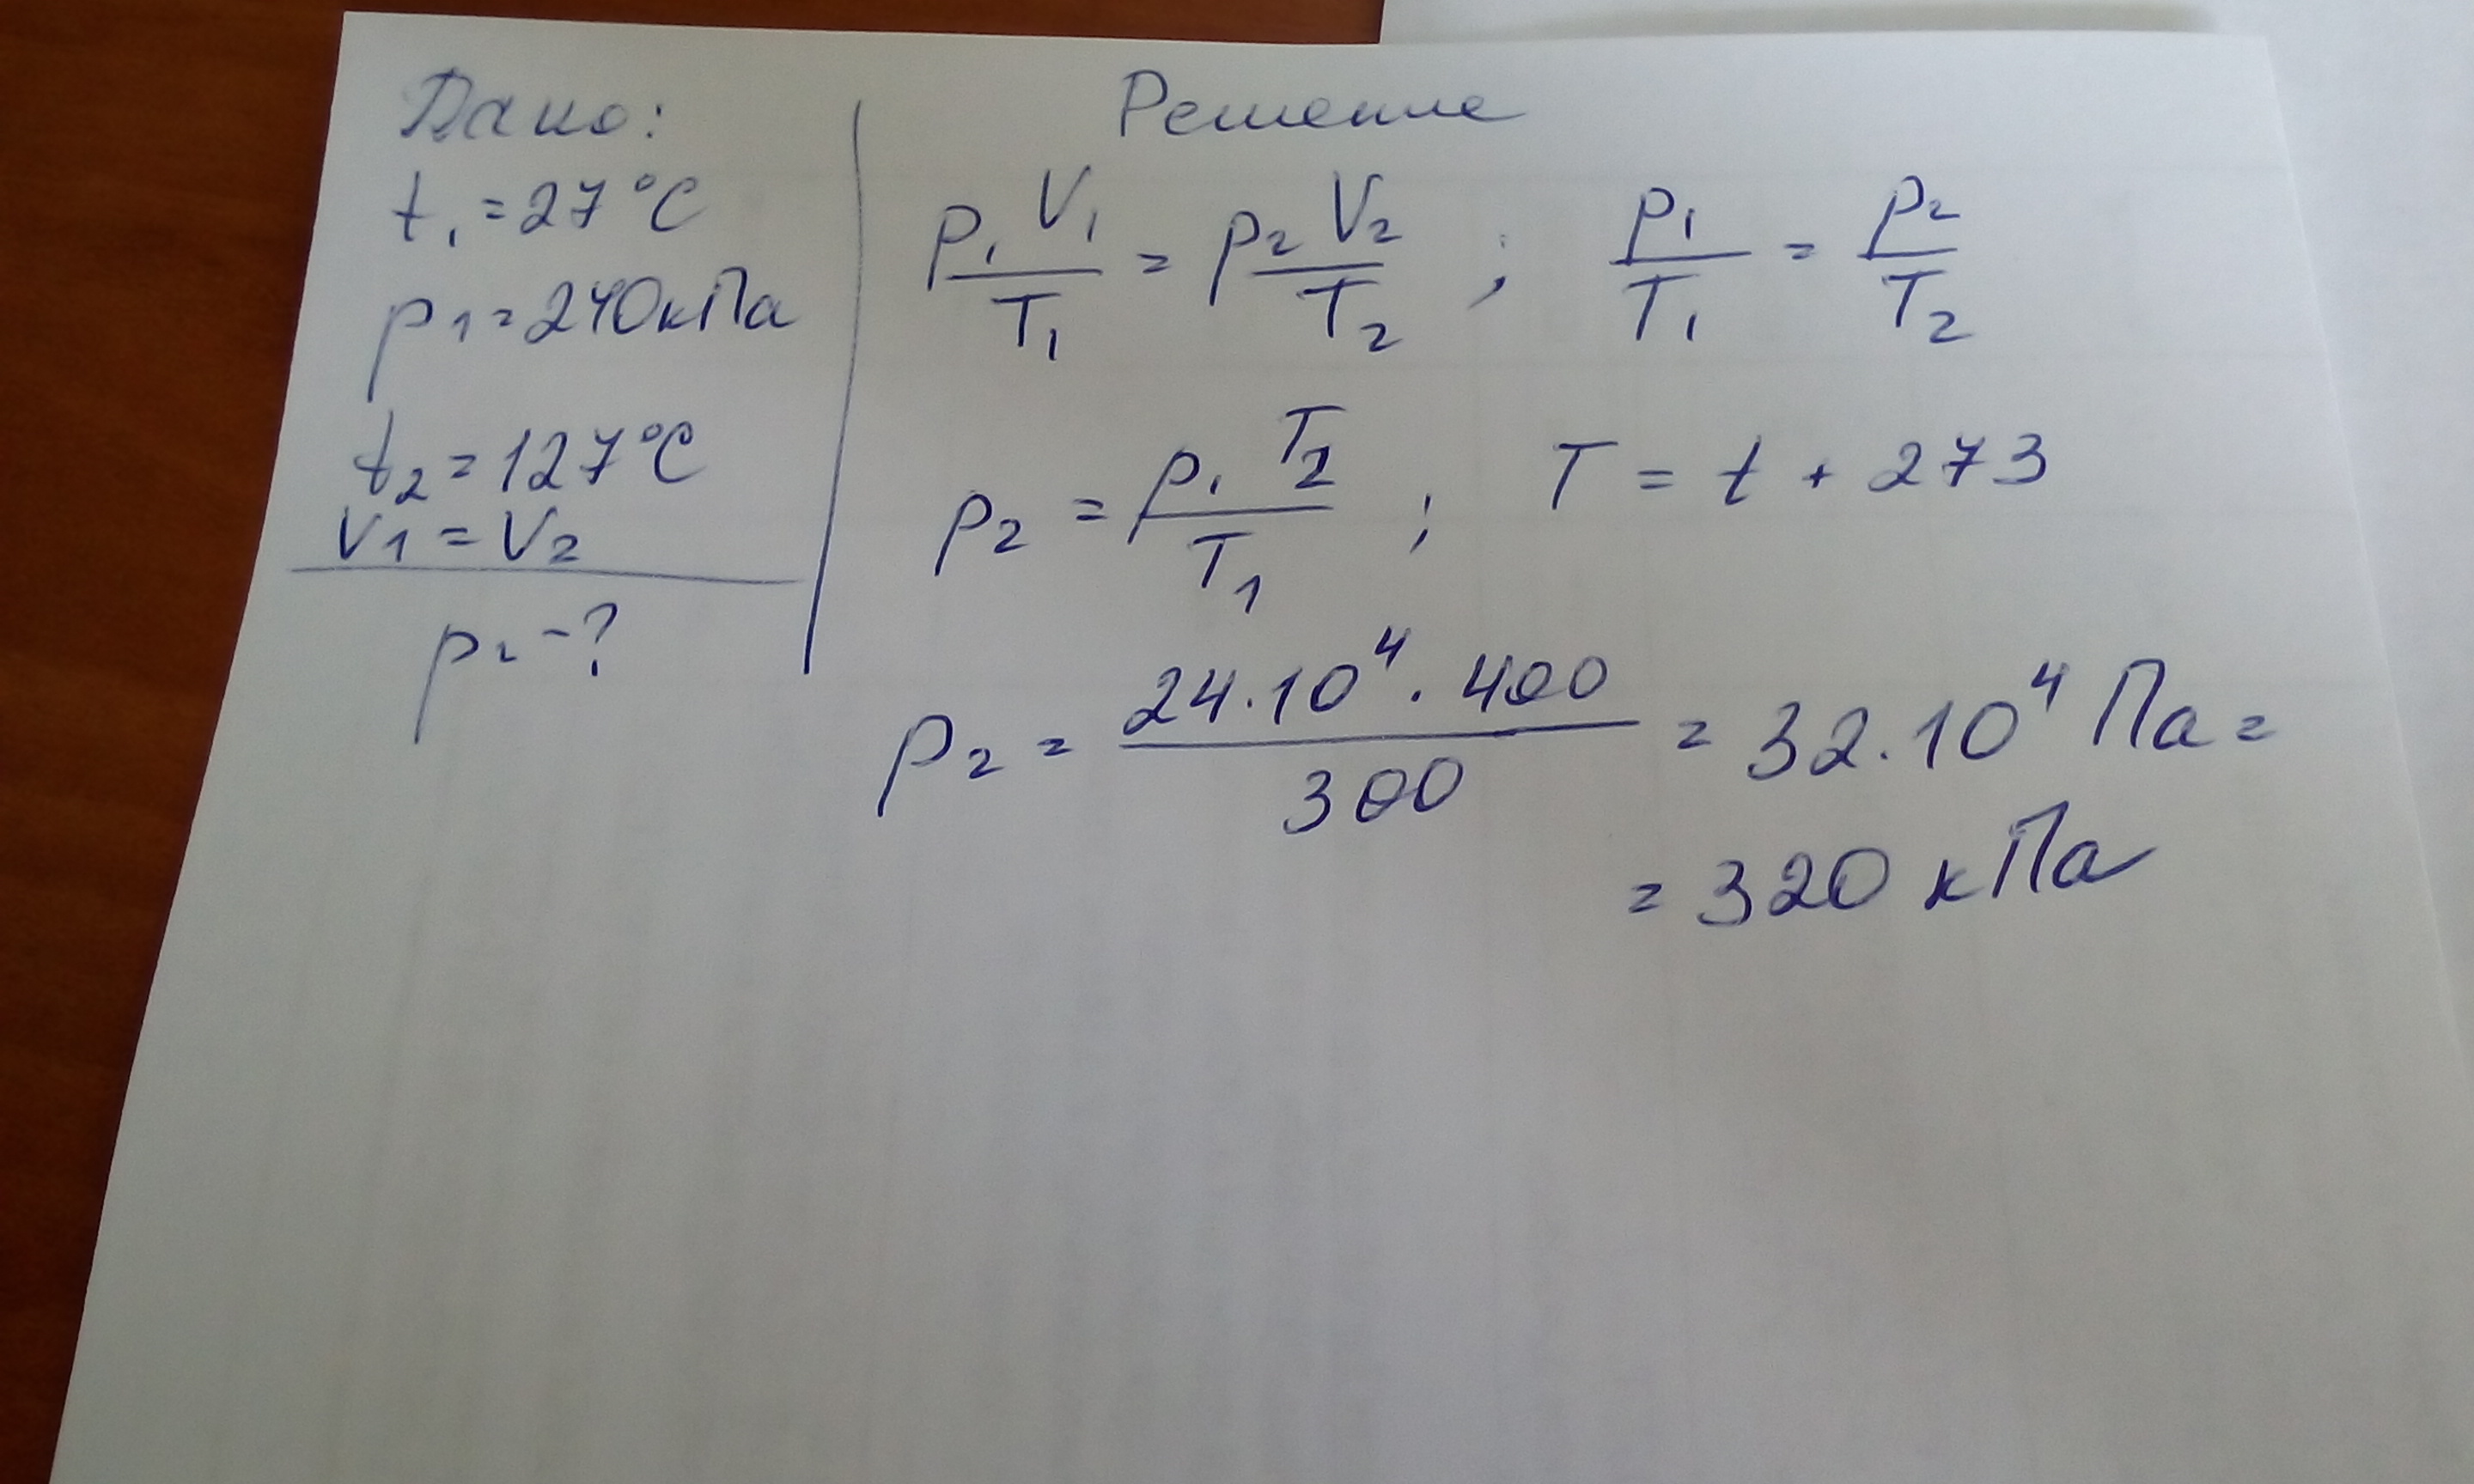 Дано:
t₁ = 27 °C
p₁ = 240 кПа
t₂ = 127 °C
V₁ = V₂
p₂ - ?
Решение
p₁ V₁ / T₁ = p₂ V₂ / T₂ ; p₁ / T₁ = p₂ / T₂
p₂ = p₁ T₂ / T₁ ; T = t + 273
p₂ = 24 · 10⁴ · 400 / 300 = 32 · 10⁴ Па =
= 320 кПа